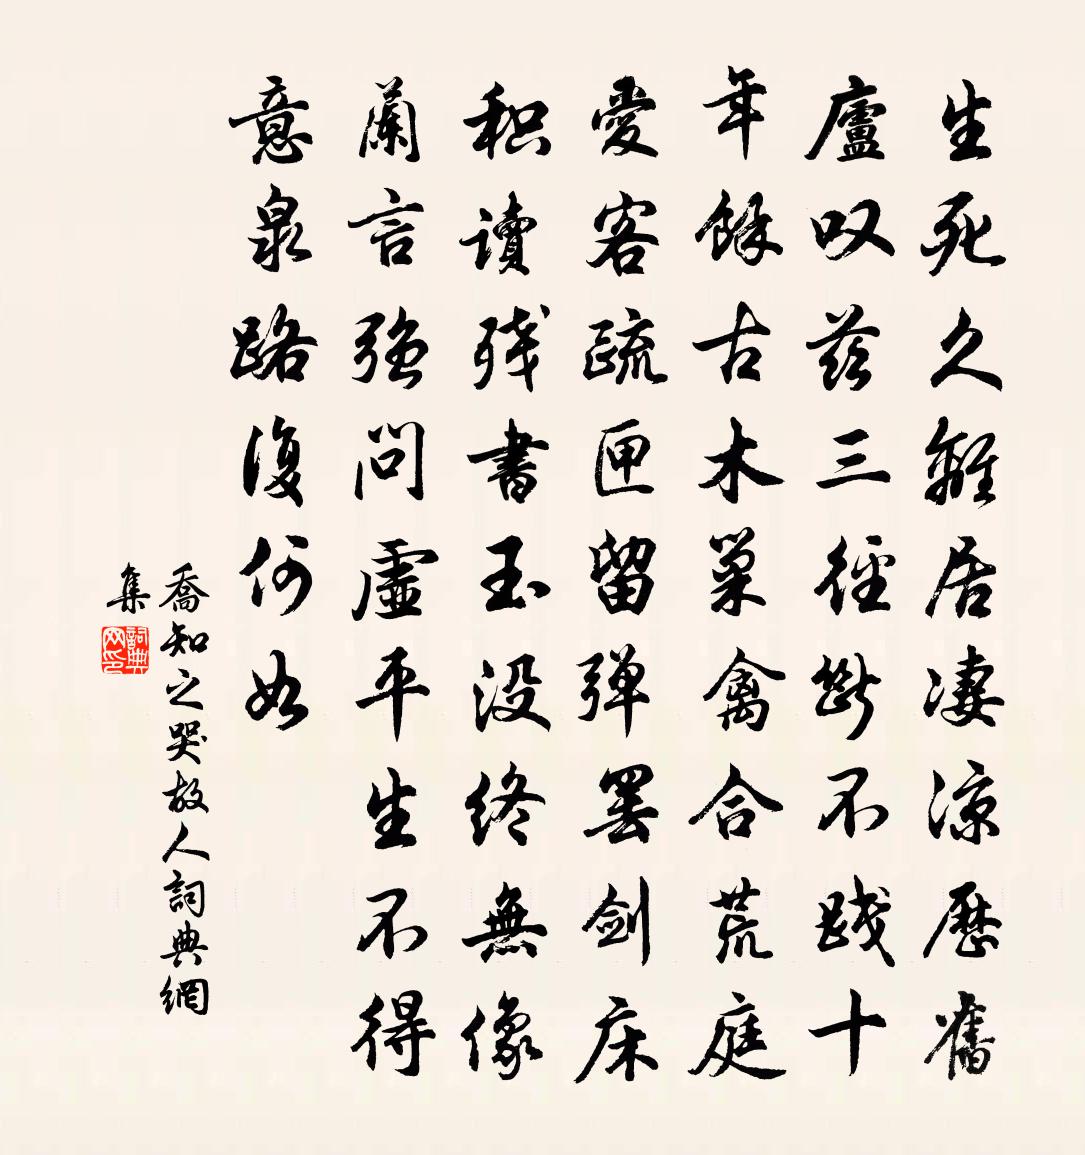 生死久離居凄涼歷舊
廬叹茲三徑斷不踐十
年餘古木巢禽合荒庭
愛客疏匣留弹罢剑床
积讀残書玉没终無像
蘭言强問虛平生不得
意泉路復何如
喬知之哭故人詞典網
集
詞典
网印